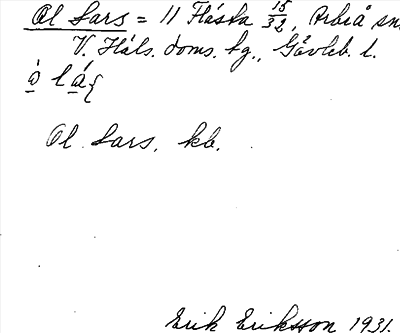 Ol Lars = 11 Flästa 15/32, Arbrå sn.
V. Häls. doms. hg., Gävleb. l.
Ol Lars. kb.
Erik Eriksson 1931.